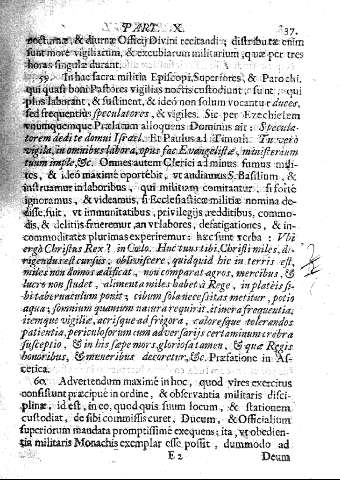 PART. X. 37.
nocturnæ, & diurnæ Officij Divini recitandi; distributæ enim
sunt more vigiliarum, & excubiarum militarium, quæ per tres
horas singulæ durant.
59. In hac sacra militia Episcopi, Superiores, & Parochi,
qui quasi boni Pastores vigilias noctis custodiunt, sunt qui
plus laborant, & sustinent, & ideò non solum vocantur duces,
sed frequentiùs speculatores, & vigiles. Sic per Ezechielem
unumquemque Prælatum alloquens Dominus ait: Specula-
torem dedi te domui Israel. Et Paulus ad Timoth. Tu verò
vigila, in omnibus labora, opus fac Evangelistæ, ministerium
tuum imple, &c. Omnes autem Clerici ad minus sumus mili-
tes, & ideò maximè oportebit, ut audiamus S. Basilium, &
instruamur in laboribus, qui militem comitantur, si fortè
ignoramus, & videamus, si Ecclesiasticæ militiæ nomina de-
disse, fuit, ut immunitatibus, privilegijs, redditibus, commo-
dis, & delitijs frueremur, an ut labores, defatigationes, & in-
commoditates plurimas experiremur: hæc sunt verba: Ubi
ergò Christus Rex? in Cœlo. Huc tuus tibi, Christi miles, di-
rigendus est cursus, obliviscere, quidquid hic in terris est,
miles non domos ædificat, non comparat agros, mercibus, &
lucro non studet, alimenta miles habet à Rege, in plateis si-
bi tabernaculum ponit; cibum sola necessitas metitur, potio
aqua; somnium quantum natura requirit, itinera frequentia;
itemque vigiliæ, acrisque ad frigora, caloresque tolerandos
patientia, periculosorum cum adversarijs certaminum crebra
susceptio, & in his sæpe mors, gloriosa tamen, & quæ Regis
honoribus, & muneribus decoretur, &c. Præfatione in As-
cetica.
60. Advertendum maximè in hoc, quod vires exercitus
consistunt præcipuè in ordine, & observantia militaris disci-
plinæ, id est, in eo, quod quis suum locum, & stationem
custodiat, de sibi commissis curet, Ducum, & Officialium
superiorum mandata promptissimè exequens; ita, ut obedien-
tia militaris Monachis exemplar esse possit, dummodo ad
E 2 Deum